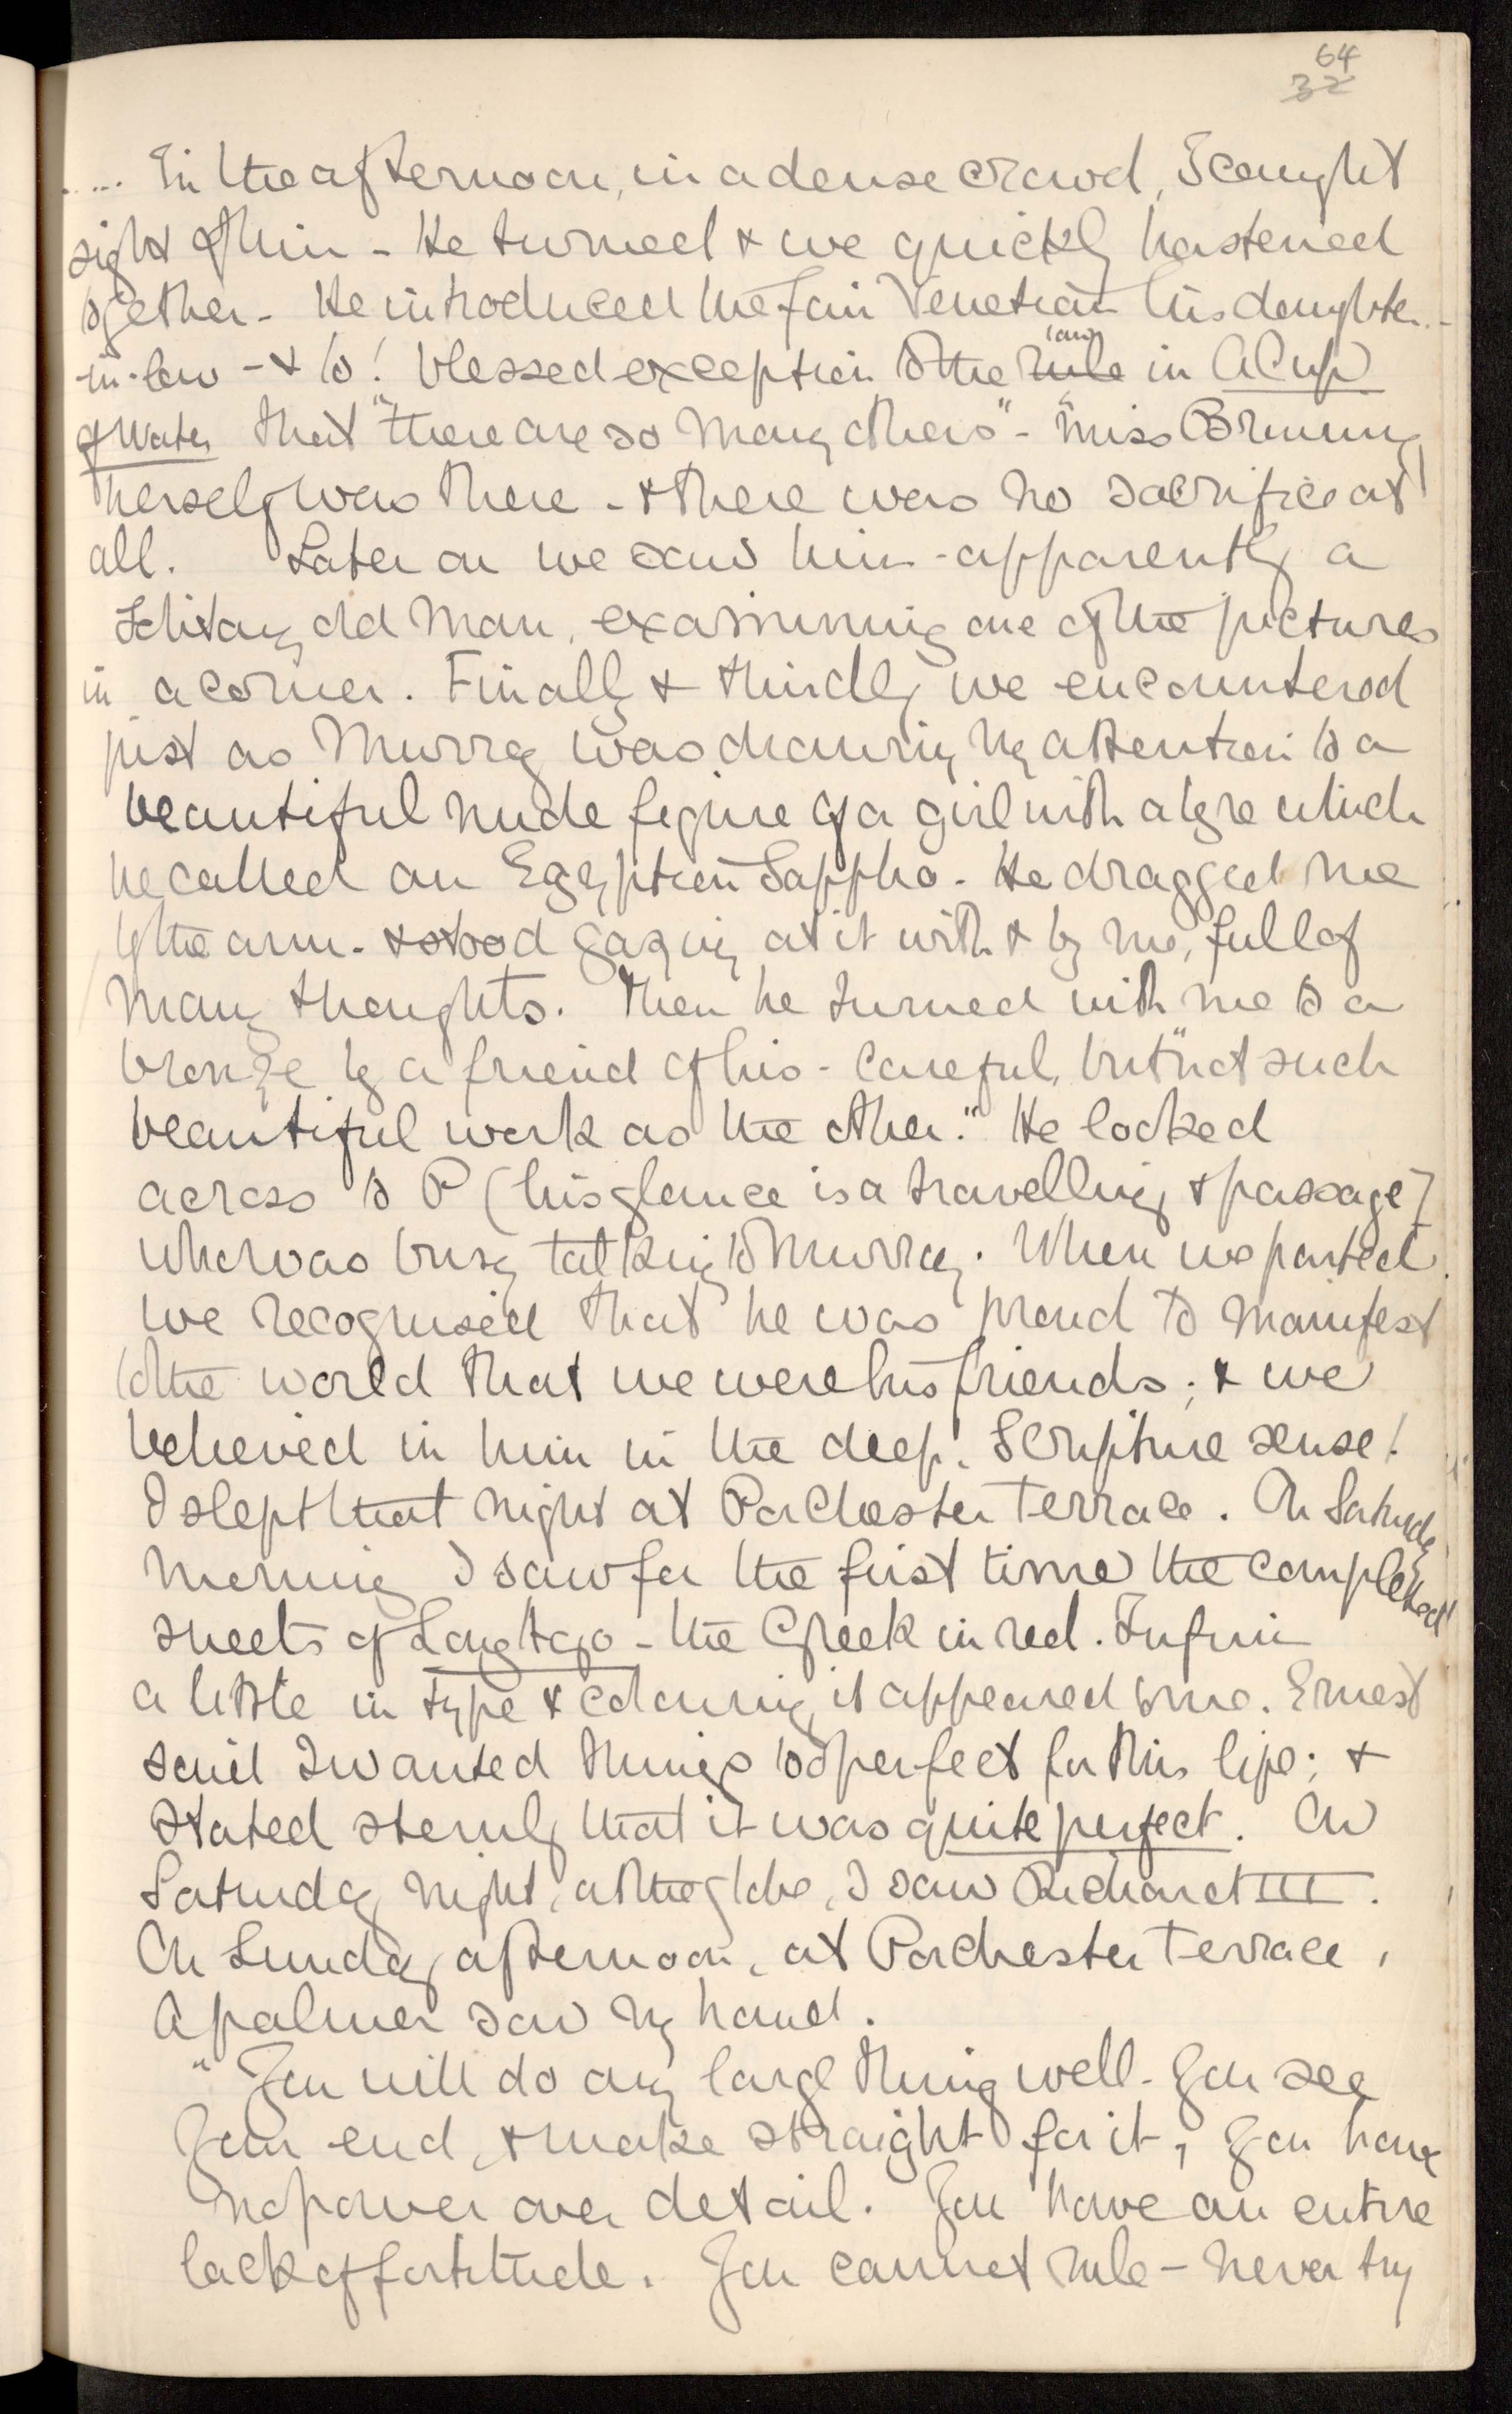 64
32
..... In the afternoon, in a dense crowd, I caught
sight of him - He turned & we quickly hastened
together. He introduced the fair Venetian his daughter-
-in-law - & lo! blessed exception to the law rule in A Cup
of Water that "there are so many others" - Miss Browning
herself was there - & there was no sacrifice at
all. Later on we saw him - apparently a
solitary old man, examining one of the pictures
in a corner. Finally & thirdly we encountered
just as Murray was drawing my attention to a
beautiful nude figure of a girl with a lyre which
he called an Egyptian Sappho. He dragged me
by the arm - & stood gazing at it with & by me, full of
many thoughts. Then he turned with me to a
bronze by a friend of his - careful, but "not such
beautiful work as the other." He looked
across to P (his glance is a travelling & passage)
who was busy talking to Murray. When we parted
we recognised that he was proud to manifest
to the world that we were his friends; & we
believed in him in the deep, Scripture sense!
I slept that night at Porchester Terrace. On Saturday
morning I saw for the first time the completed
sheets of Long Ago - the Greek in red. Inferior
a little in type & colouring it appeared to me. Ernest
said I wanted things too perfect for this life; &
stated sternly that it was quite perfect. On
Saturday night, at the Globe, I saw Richard III.
On Sunday afternoon, at Porchester Terrace,
A palmer saw my hand.
"You will do any large thing well - You see
your end, & make straight for it, you have
no power over detail. You have an entire
lack of fortitude. You cannot rule - never try